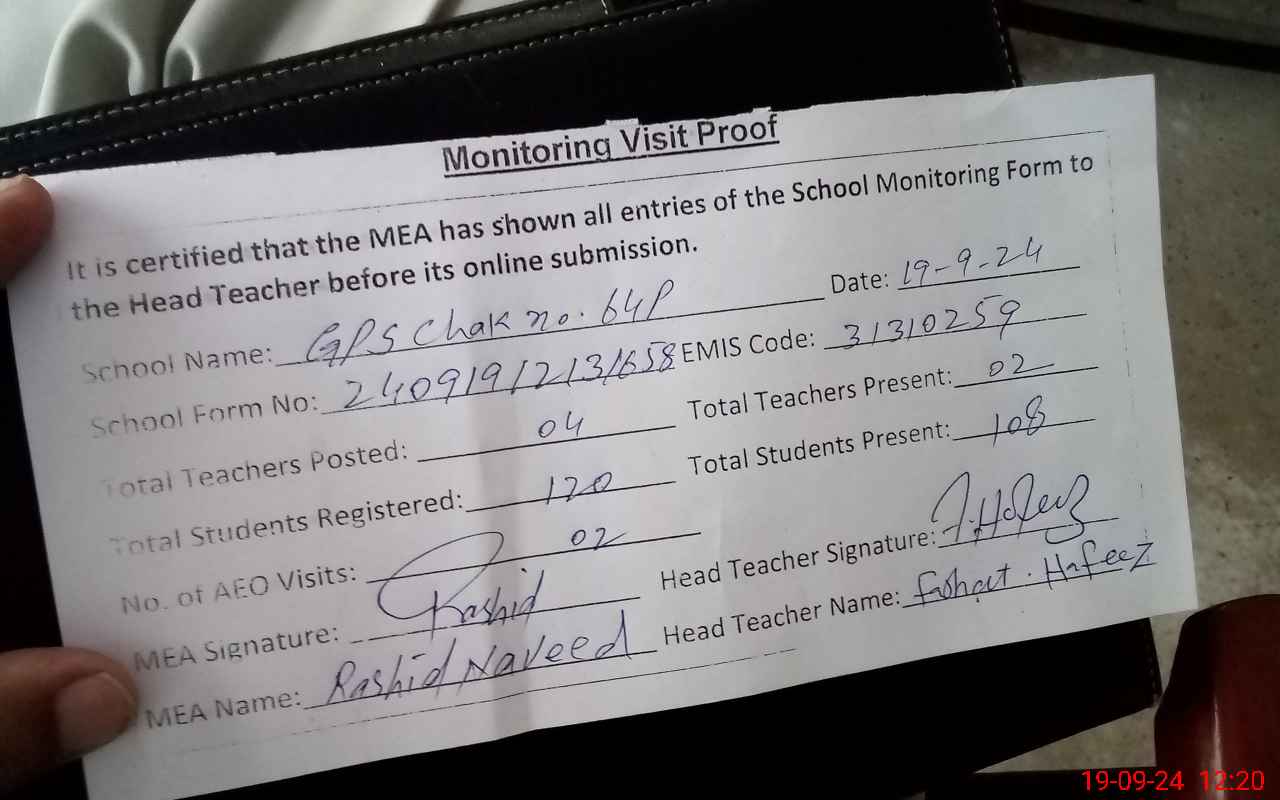 Monitoring Visit Proof
It is certified that the MEA has shown all entries of the School Monitoring Form to
the Head Teacher before its online submission.
School Name: GPS Chak no. 64P Date: 19-9-24
School Form No: 24091912131658 EMIS Code: 31310259
Total Teachers Posted: 04 Total Teachers Present: 02
Total Students Registered: 120 Total Students Present: 108
No. of AEO Visits: 02
MEA Signature: Rashid Head Teacher Signature: F.Hafeez
MEA Name: Rashid Naveed Head Teacher Name: Hafeez
19-09-24 12:20